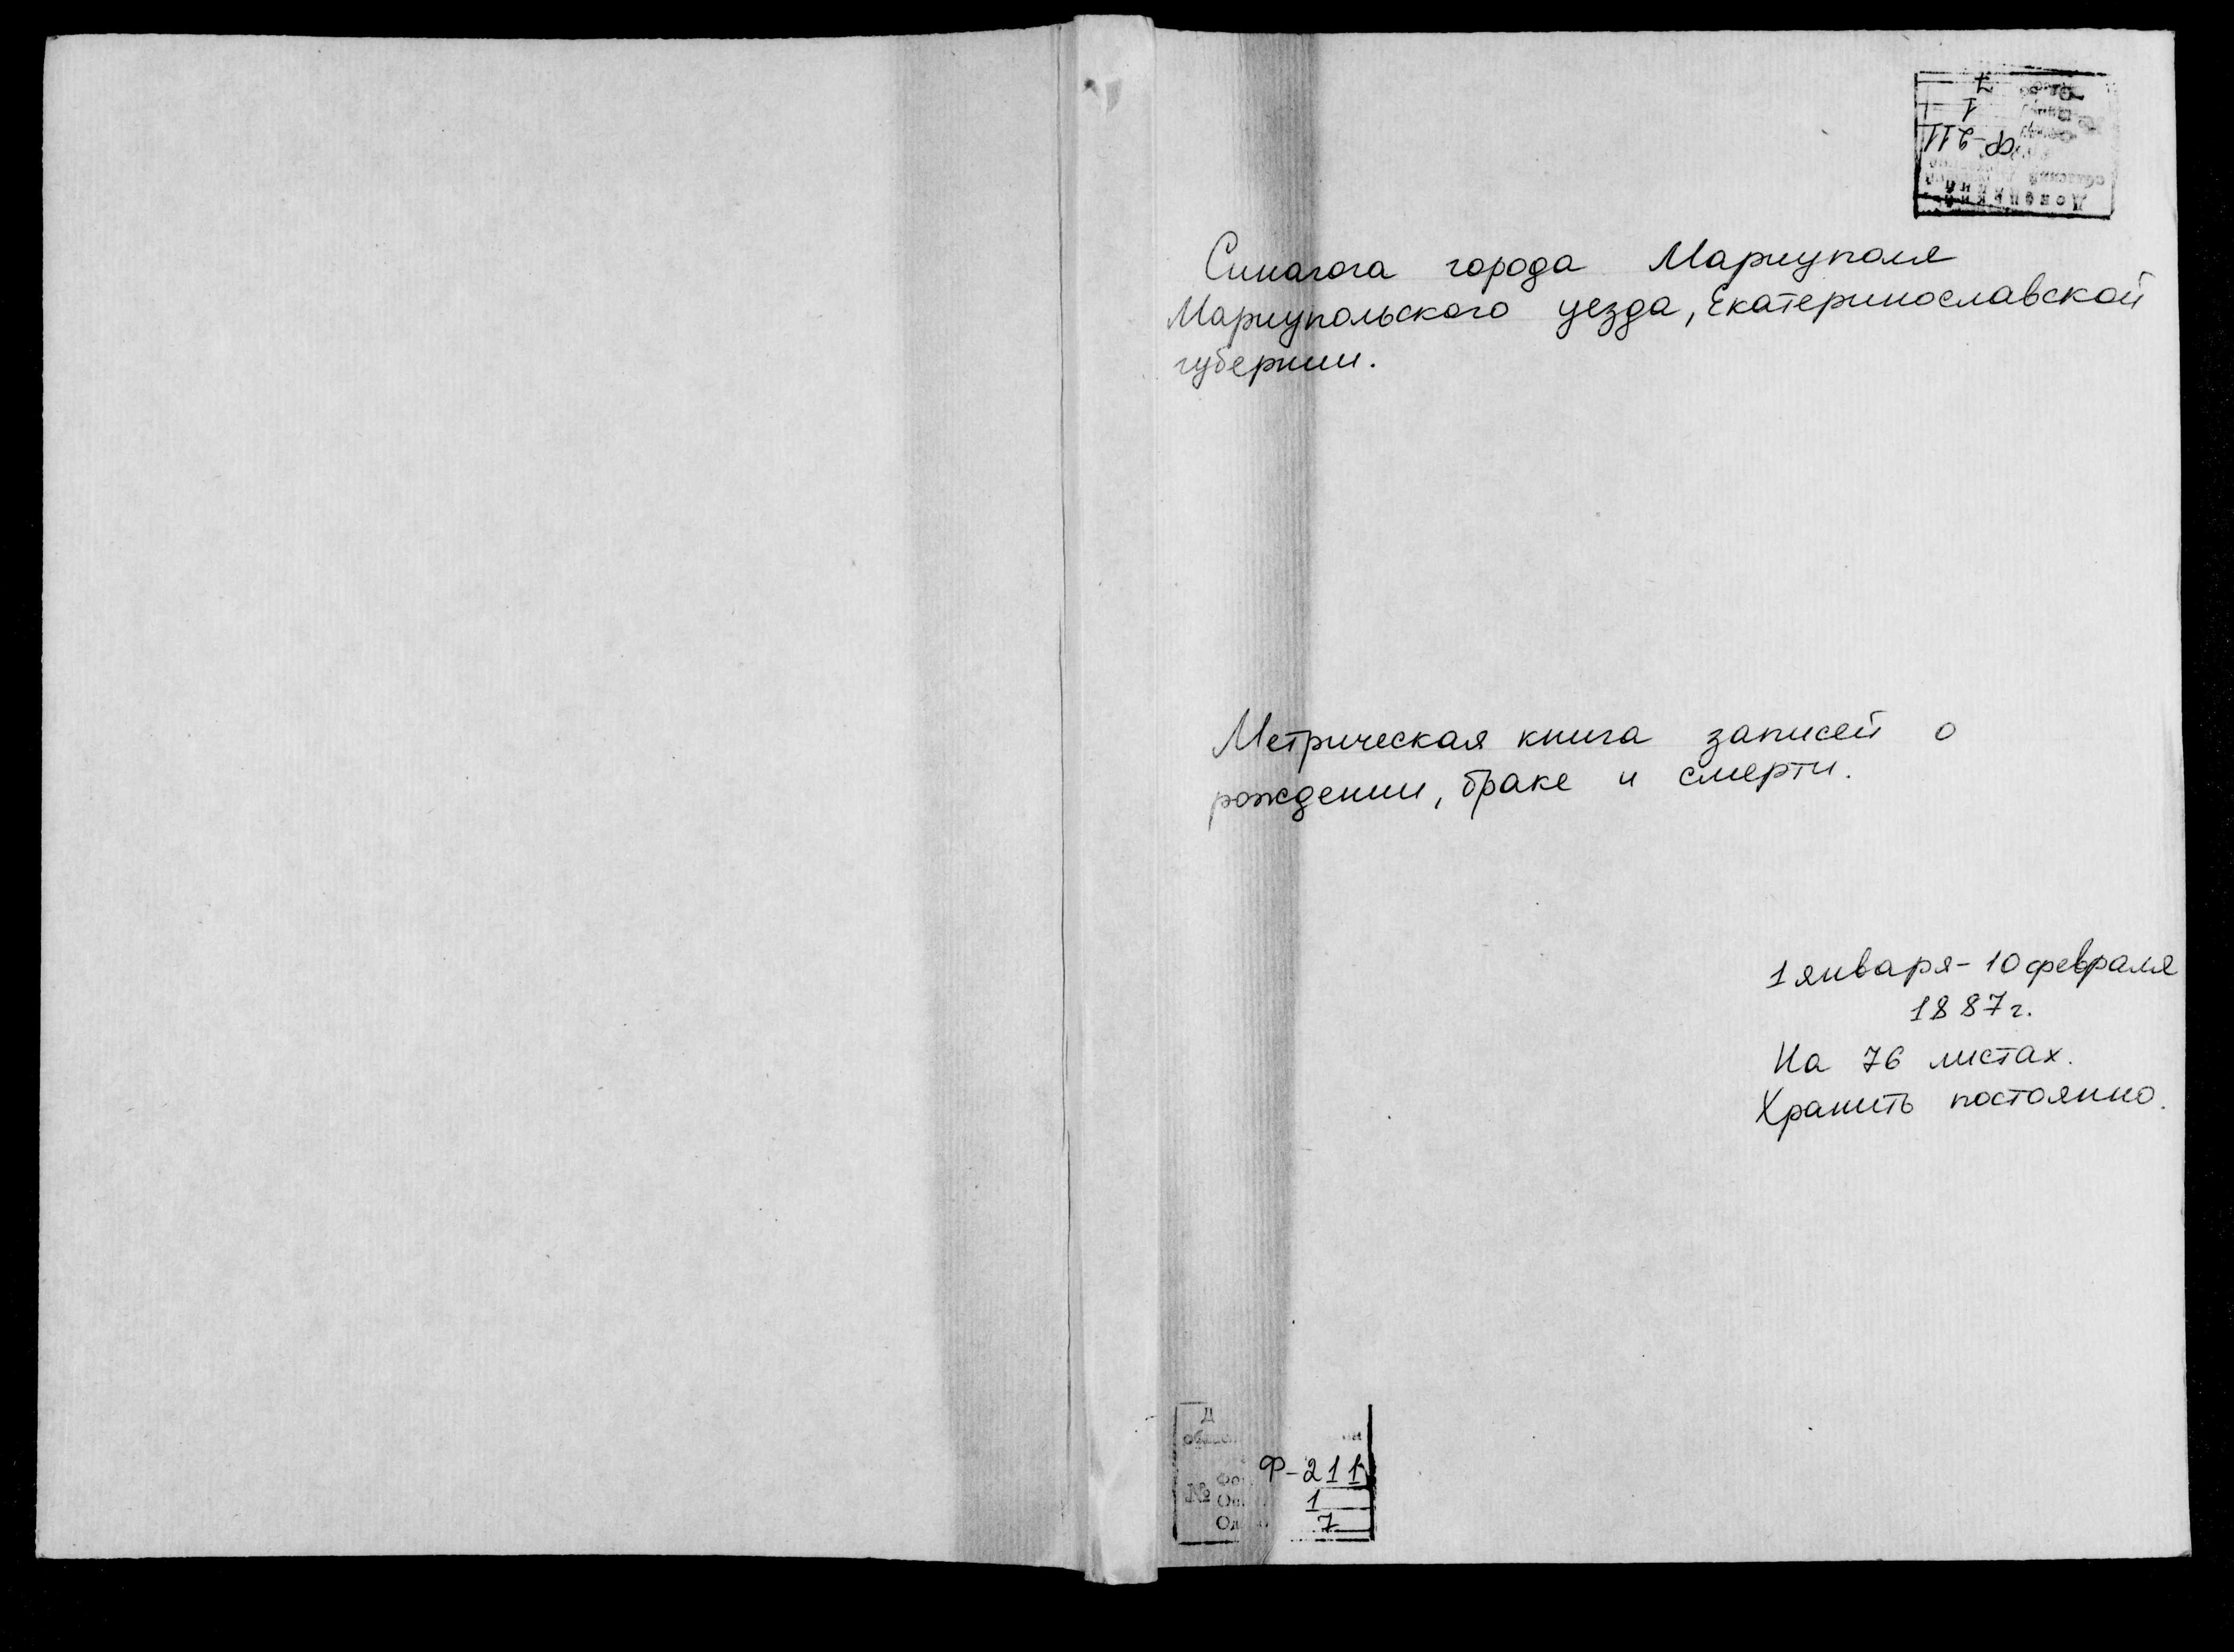 Ф-211
1
7
Синагога города Мариуполя
Мариупольского уезда, Екатеринославской
губернии.
Метрическая книга записей о
рождении, браке и смерти.
1 января - 10 февраля
1887 г.
На 76 листах.
Хранить постоянно.
Ф-211
№ 1
7